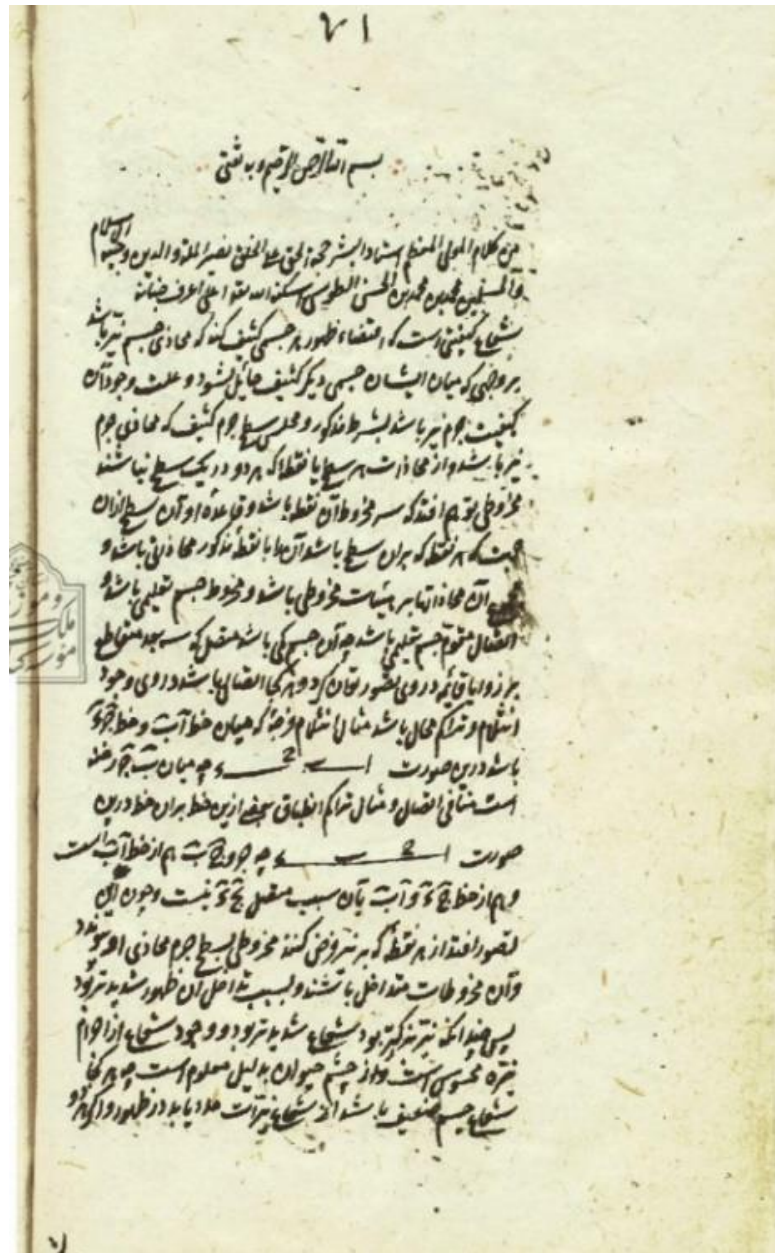 ۷۱
بسم الله الرحمن الرحیم و به ثقتی
من کلام المولی المعظم استاد البشر حجة الحق علی الخلق نصیر الملة والدین الاسلام
والمسلمین محمد بن محمد بن الحسن الطوسی اسکنه الله تعالی اعلی غرف جنانه
شعاع کیفیتی است که اقتضاء ظهور هر جسمی کثیف کند که محاذی جسم نیر باشد
بر وجهی که میان ایشان جسمی دیگر کثیف حایل نشود و علت وجود آن
کیفیت جرم نیر باشد بشرط مذکور و محلش سطح جرم کثیف که محاذی جرم
نیر باشد و از محاذات هر سطح با نقطه که هر دو در یک سطح نباشند
مخروطی بتوهم افتد که سر مخروط آن نقطه باشد و قاعده او آن سطح از آن
جهت که هر نقطه که بر آن سطح باشد آن را با نقطه مذکور محاذاتی باشد و
آن محاذاتها بر هیئات مخروطی باشد و مخروط جسم تعلیمی باشد و
اتصال مقوم جسم تعلیمی باشد چه آن جسم کمی باشد متصل که سه بعد متقاطع
بر زوایا قایم در وی تصور توان کرد و هر کجا اتصالی باشد در وی وجود
انثلام و تراکم محال باشد مثال انثلام فرجۀ که میان خط آب و خط جء
باشد درین صورت ا ب ج ء چه میان ب ج رخنه
است منافی اتصال و مثال تراکم انطباق بعضی ازین خط بر آن خط درین
صورت ا ج ب ء چه جزو ج ب هم از خط آب است
و هم از خط جء و آب بآن سبب متصل بجء نیست و چون این
تصور افتد از هر نقطه که بر نیر فرض کنند مخروطی بسطح جرم محاذی او پیوندد
و آن مخروطات متداخل باشند و بسبب تداخل آن ظهور شدیدتر بود
پس چندانکه نیر بزرگتر بود شعاع شدیدتر بود و وجود شعاع از اجرام
نیره محسوس است و از چشم حیوان بدلیل معلوم است چه هر کجا
شعاع چشم ضعیف باشد از شعاع نیرات مدد یابد در ظهور و اگر هر دو